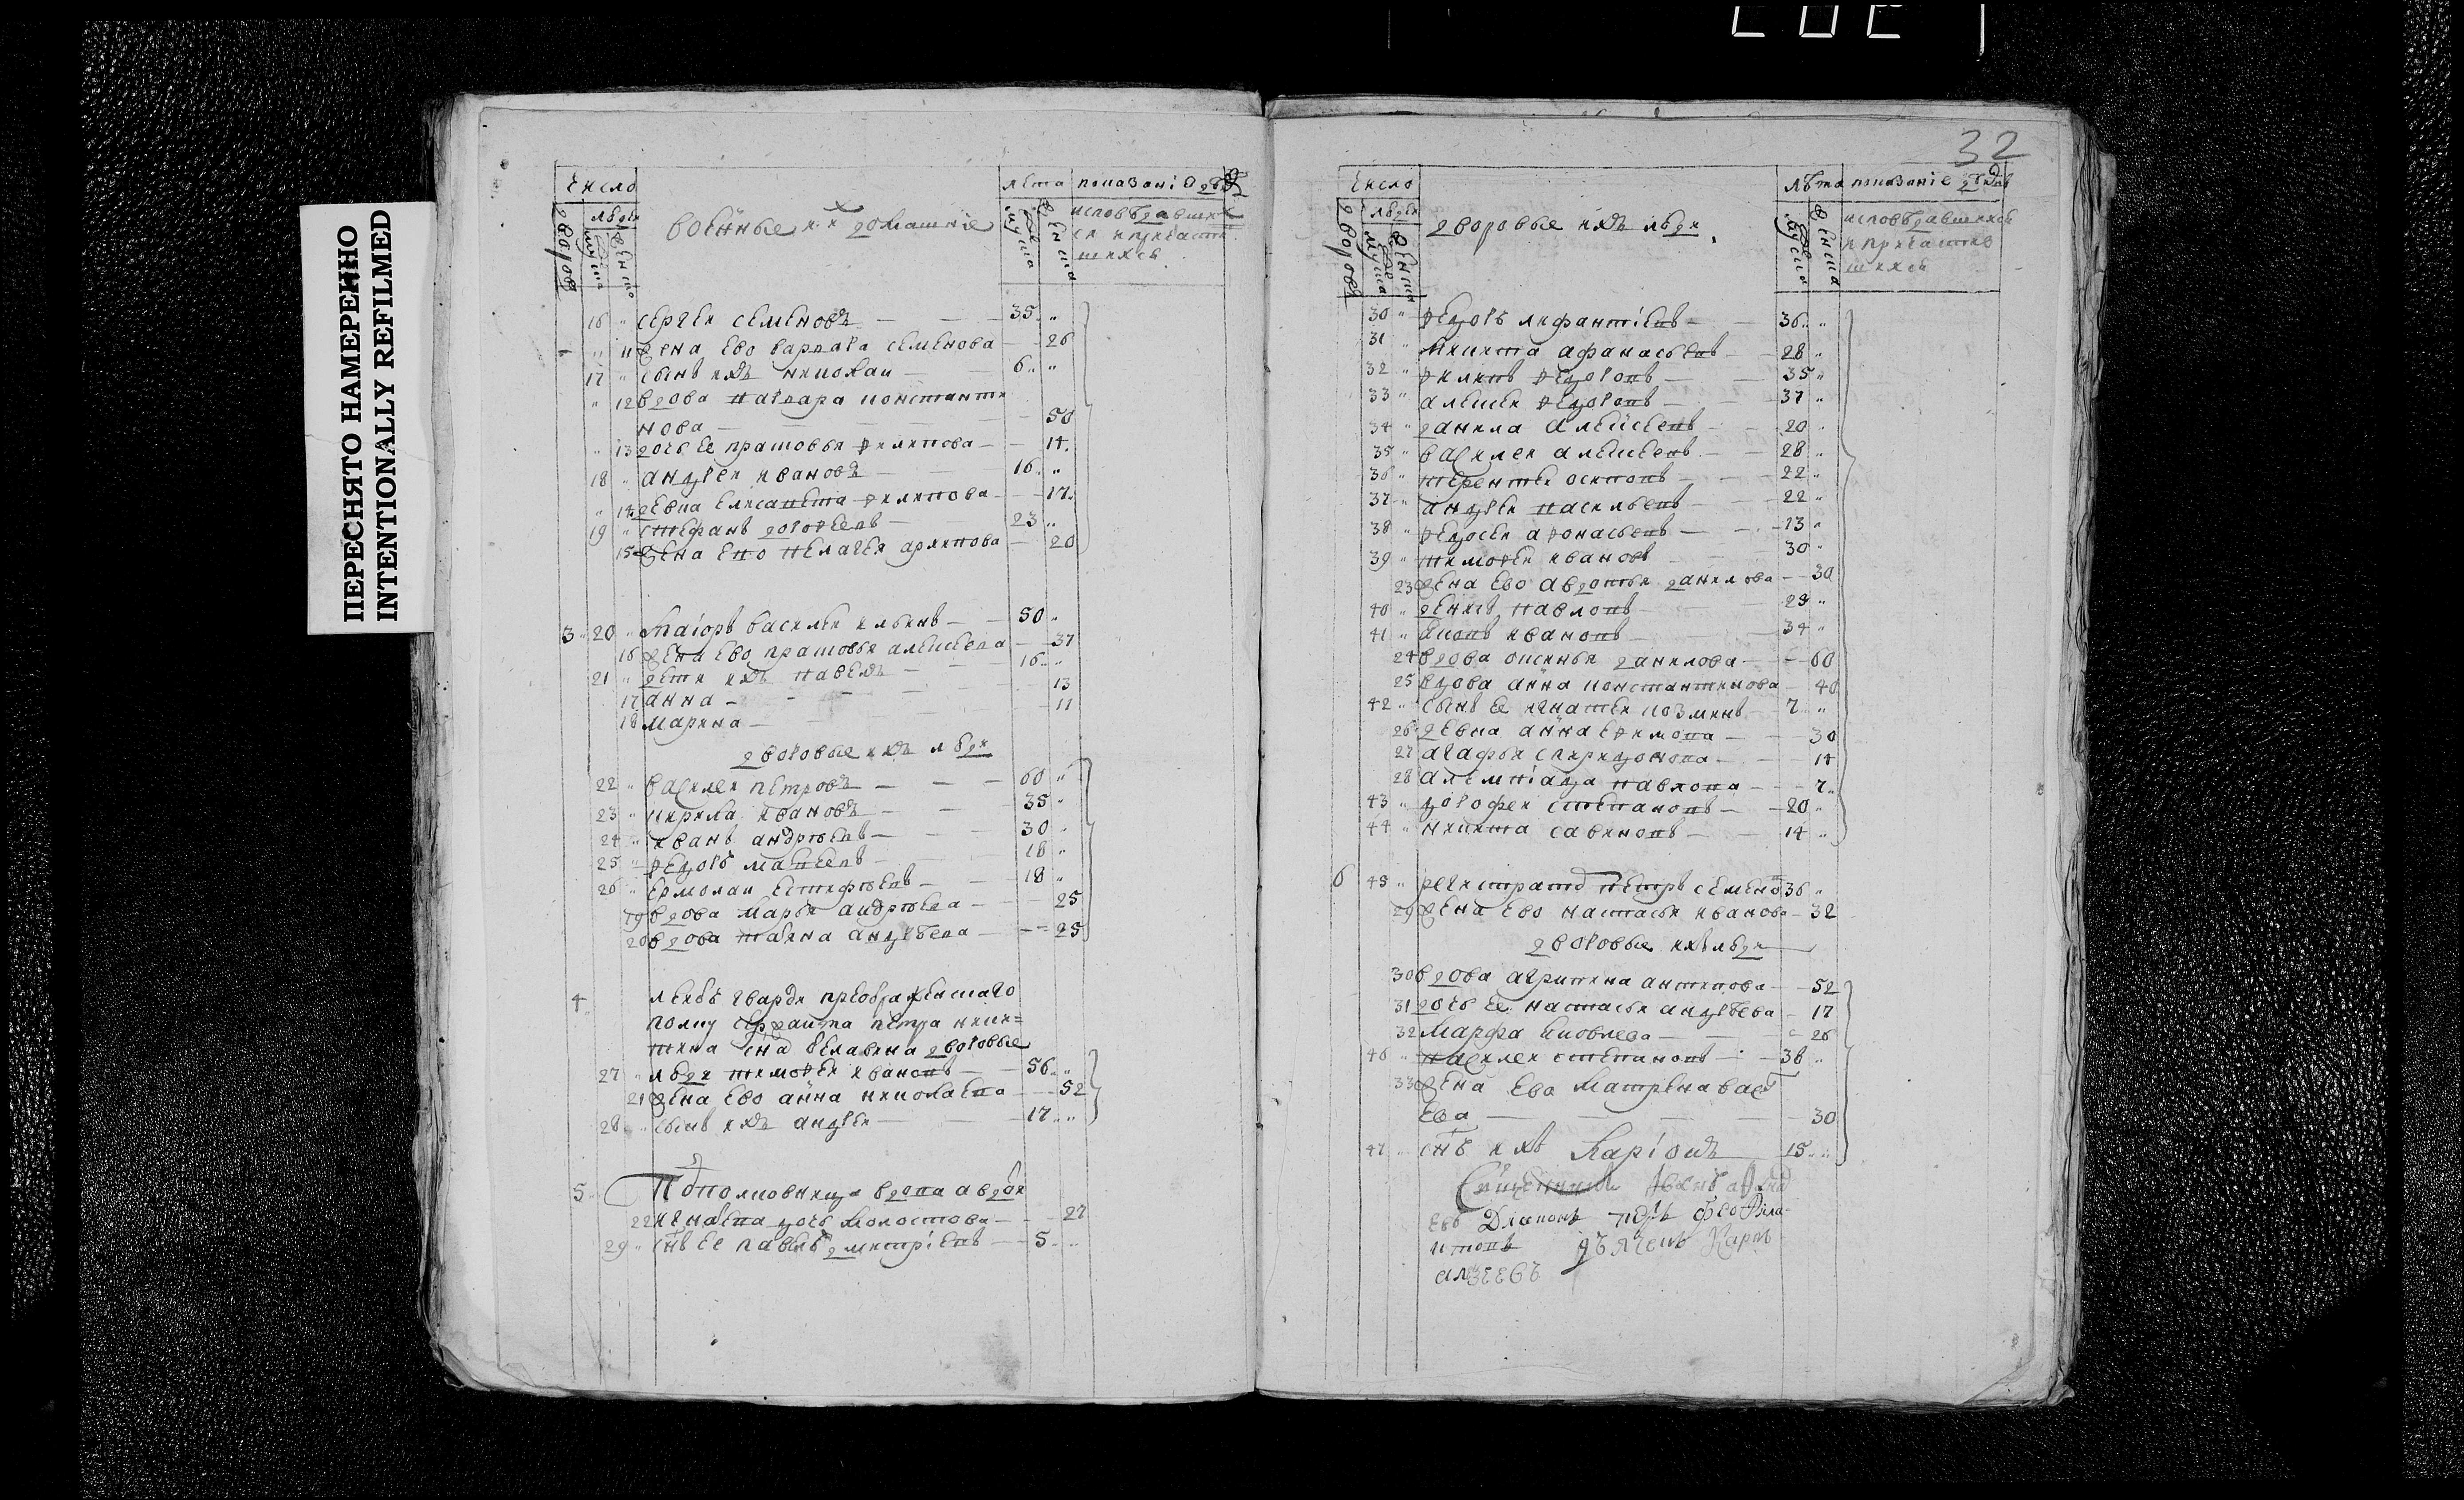 ПЕРЕСНЯТО НАМЕРЕННО
INTENTIONALLY REFILMED
число
дворовъ
людеи
мужска
женска
военные и ихъ домашние
лета
мужска
женска
показание
исповедавших
ся и причасти
шихся
16 " Сергеи Семеновъ — 35 "
" 11 жена ево Варвара Семенова — 26
17 " сынъ ихъ Николаи — 6 "
" 12 вдова Варвара Константи
нова — 50
" 13 дочь ее Прасковья Филипова — 14
18 " Андреи Ивановъ — 16 "
" 14 девка Елисавета Филипова — 17
19 " Стефанъ Дорофеевъ — 23 "
15 жена ево Пелагея Архипова — 20
3 20 " Маіоръ Василеи Ильинъ — 50 "
16 жена ево Прасковья Алексеева — 37
21 " дети ихъ Павелъ — 16 "
17 Анна — 13
18 Марина — 11
дворовые ихъ люди
22 " Василеи Петровъ — 60 "
23 " Кирила Ивановъ — 35 "
24 " Иванъ Андреевъ — 30 "
25 " Федоръ Матвеевъ — 18 "
26 " Ермолаи Естифеевъ — 18 "
19 вдова Марья Андреева — 25
20 вдова Анна Андреева — 25
4 леибъ гвардіи преображенскаго
полку сержанта Петра Ники=
тина сна Белавина дворовые
27 " люди Тимофеи Ивановъ — 56 "
21 жена ево Анна Николаева — 52
28 " сынъ ихъ Андреи — 17 "
5 Подполковница вдова Авдоя
22 Игнатева дочь Молостова — 27
29 " снъ ее Павелъ Дмитріевъ — 5
32
число
дворовъ
людеи
мужска
женска
дворовые ихъ люди
лѣта
мужска
женска
показание
исповедавшихся
и причастив
шихся
30 " Федоръ Лифантіевъ — 36 "
31 " Никита Афанасьевъ — 28 "
32 " Филипъ Федоровъ — 35 "
33 " Алексеи Федоровъ — 37 "
34 " Данила Алексеевъ — 20 "
35 " Василеи Алексеевъ — 28 "
36 " Терентеи Осиповъ — 22 "
37 " Андреи Васильевъ — 22 "
38 " Федосеи Афонасьевъ — 13 "
39 " Тимофеи Ивановъ — 30 "
23 жена ево Авдотья Данилова — 30
40 " Денисъ Павловъ — 29 "
41 " Яковъ Ивановъ — 34 "
24 вдова Оксинья Данилова — 60
25 вдова Анна Константинова — 40
42 " сынъ ее Игнатеи Козминъ — 7 "
26 девка Анна Ефимова — 30
27 Агафья Спиридонова — 14
28 Алемпіада Павлова — 7
43 " Дорофеи Степановъ — 20 "
44 " Никита Савиновъ — 14 "
6 45 " Регистратор Петръ Семено 36 "
29 жена ево Настасья Иванова — 32
дворовые ихъ люди
30 вдова Агрипина Антипова — 52
31 дочь ее Настасья Андреева — 17
32 Марфа Яковлева — 26
46 " Василеи Степановъ — 38 "
33 жена ево Матрена Васі
ева — 30
47 " снъ ихъ Иларіонъ — 15 "
Священникъ Иванъ
Діаконъ Петръ Феофила
ктовъ дьячекъ Карпъ